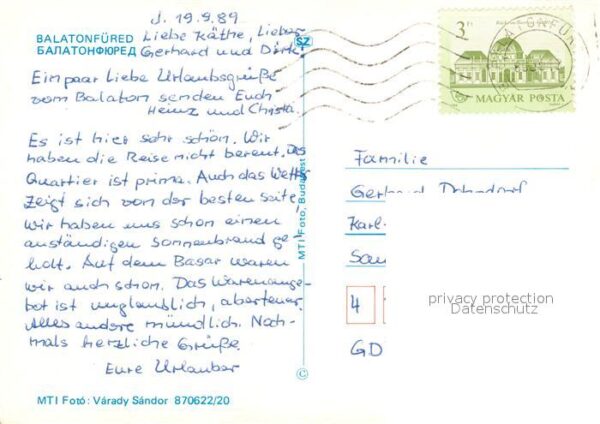 d. 19.9.89
BALATONFÜRED
БАЛАТОНФЮРЕД
Liebe Käthe, Lieber
Gerhard und Dirk
Ein paar Liebe Urlaubsgrüße
vom Balaton senden Euch
Heinz und Christa.
Es ist hier sehr schön. Wir
haben die Reise nicht bereut. Das
Quartier ist prima. Auch das Wetter
zeigt sich von der besten Seite.
Wir haben uns schon einen
anständigen Sonnenbrand ge-
holt. Auf dem Basar waren
wir auch schon. Das Warenange-
bot ist unglaublich, abenteuer.
Alles andere mündlich. Noch-
mals herzliche Grüße.
Eure Urlauber
MTI Fotó: Várady Sándor 870622/20
SZ
MTI Fotó, Budapest
©
3 Ft
MAGYAR POSTA
BALATONFÜRED
Familie
Gerhard
Karl-
4
GD
privacy protection
Datenschutz